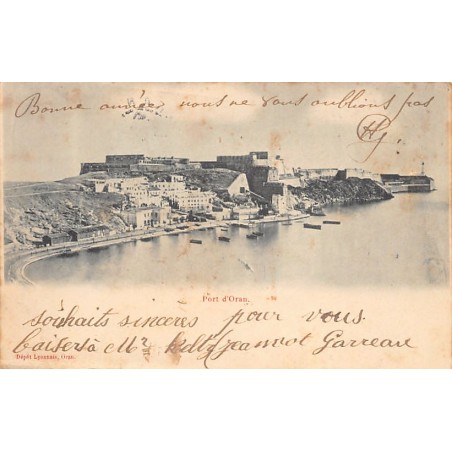 Bonne année nous ne vous oublions pas
Port d'Oran.
souhaits sincères pour vous.
baisers à Mr Kelly jeannot Garreau
Dépôt Lyonnais, Oran.